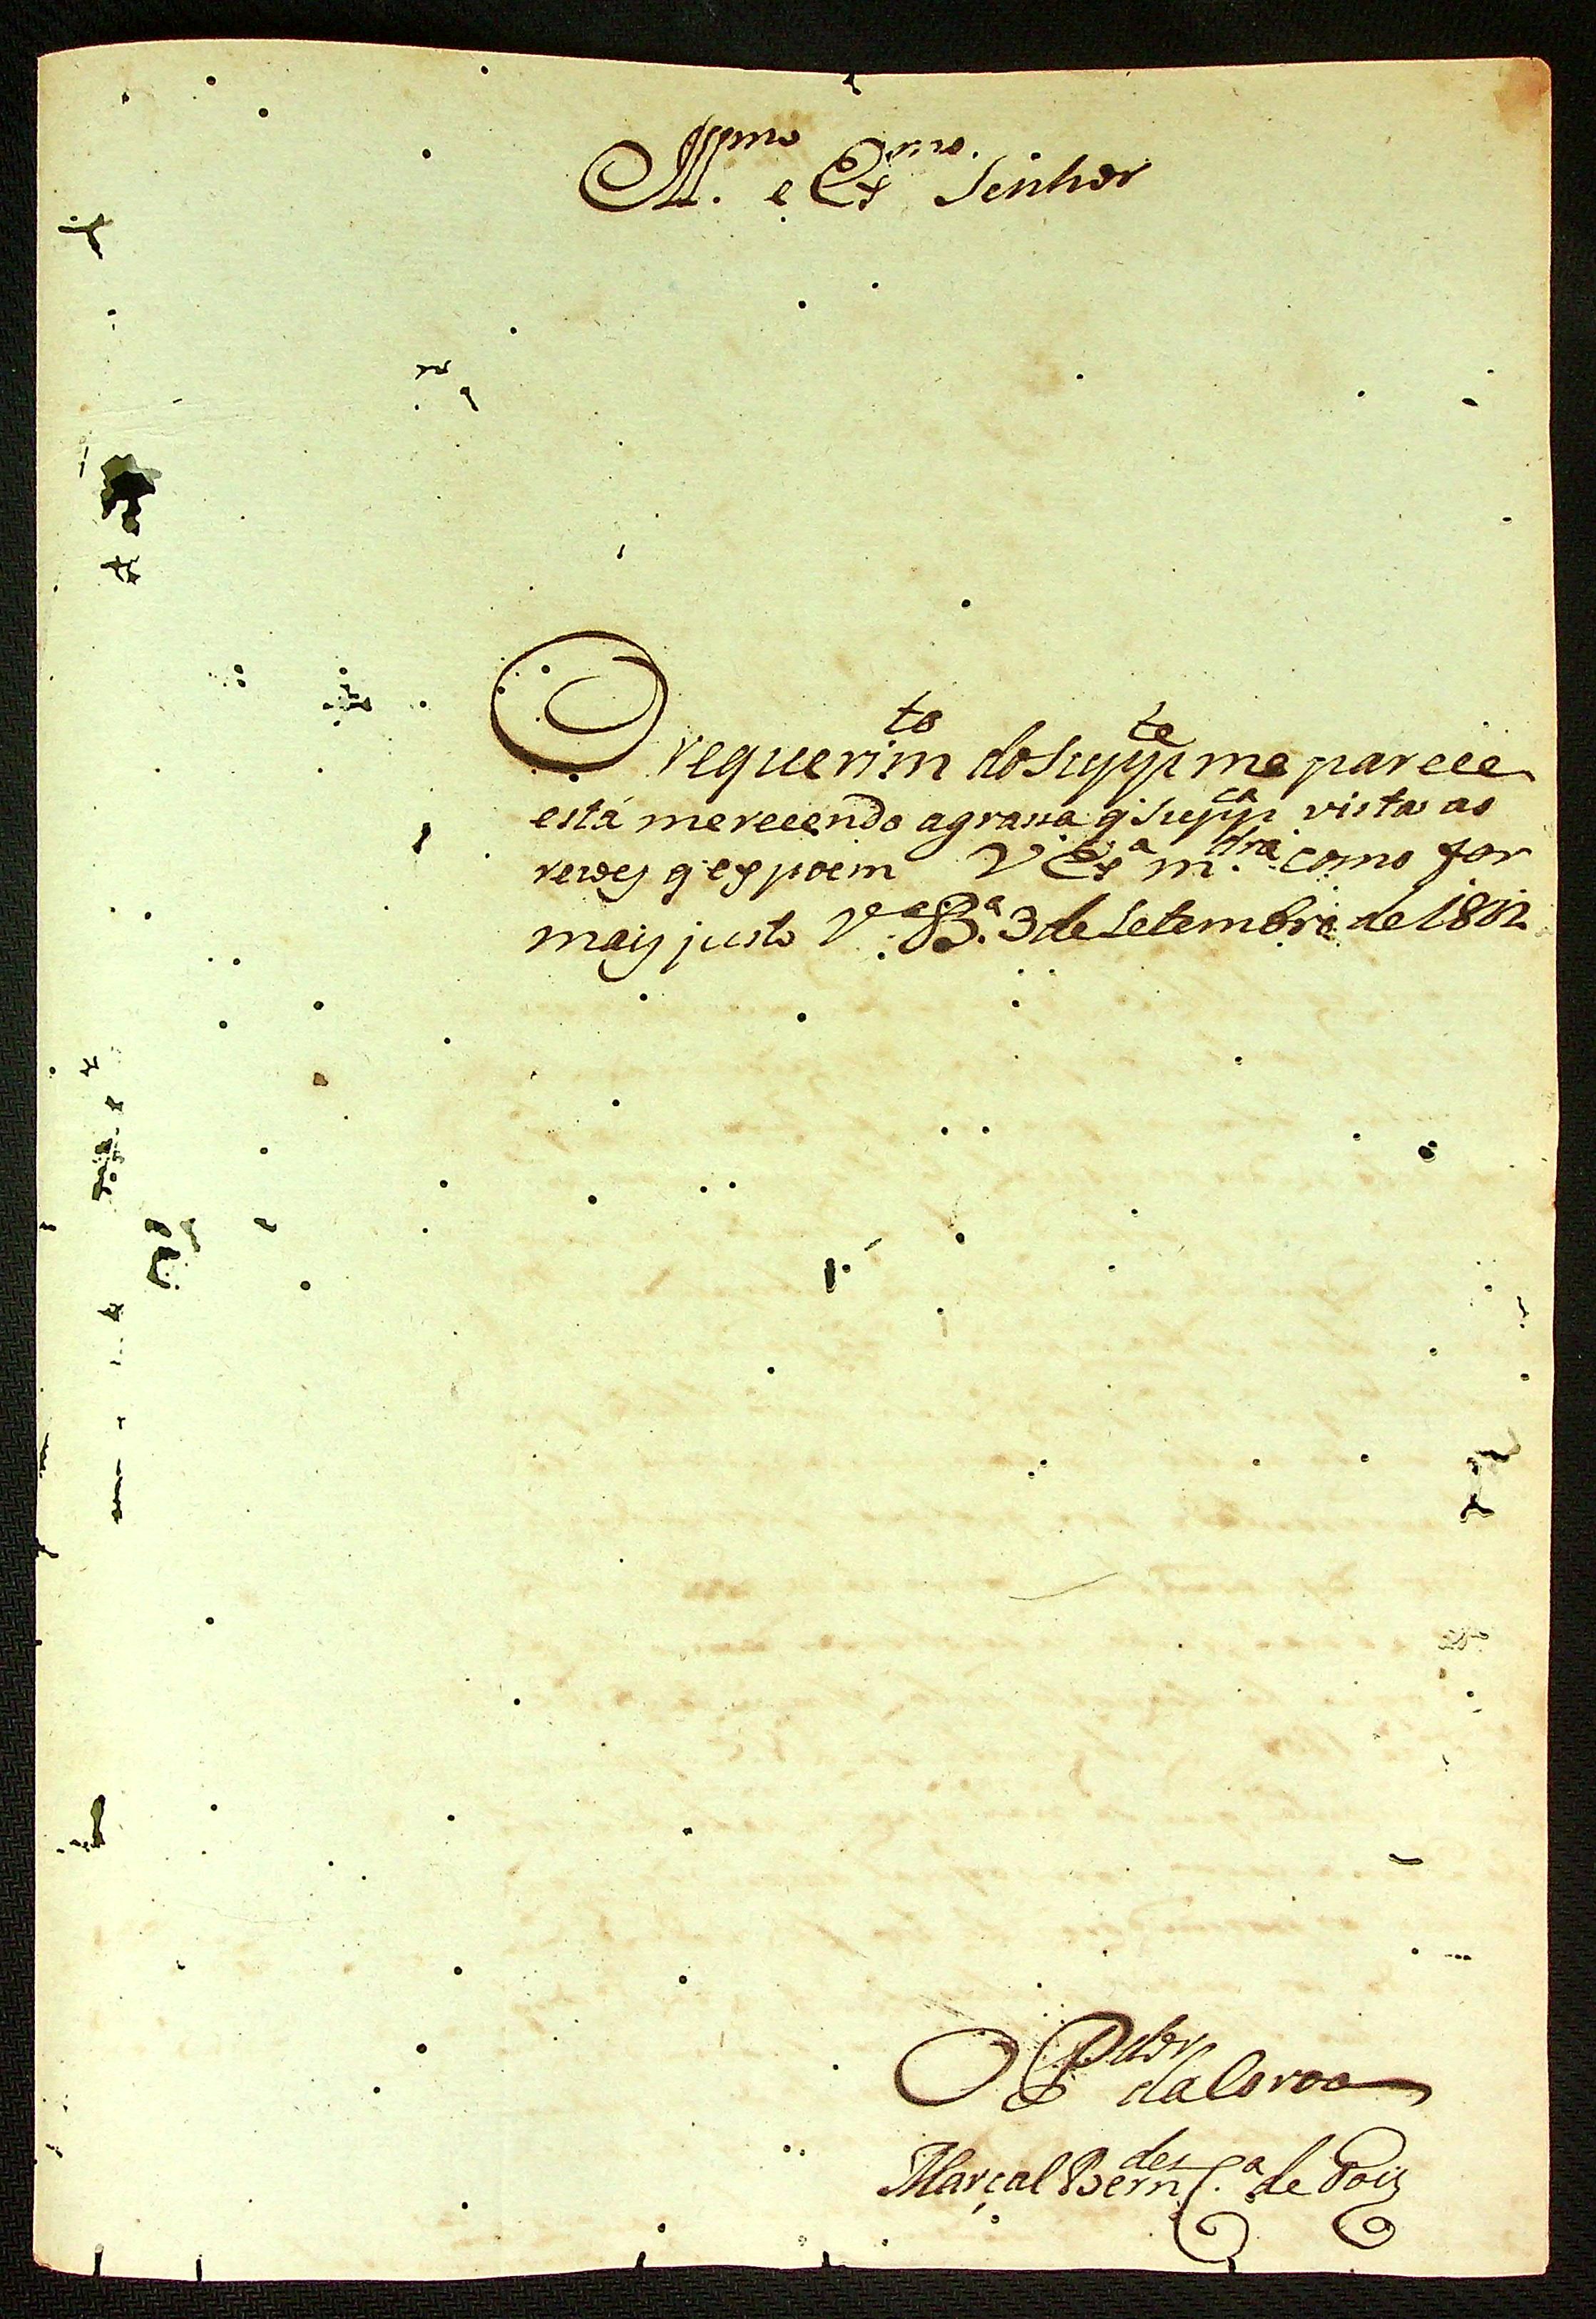 Ill.mo e Ex.mo Senhor
O requerim.to do Supp.te me parece
está merecendo agrassa q' Supp.ca vista as
rezoeŝ q' espoem V Ex.a m.dra como for
mais justo V.a B.a 3 de Setembro de 1802
O P.dor da Coroa
Marçal Bern.des C.a de